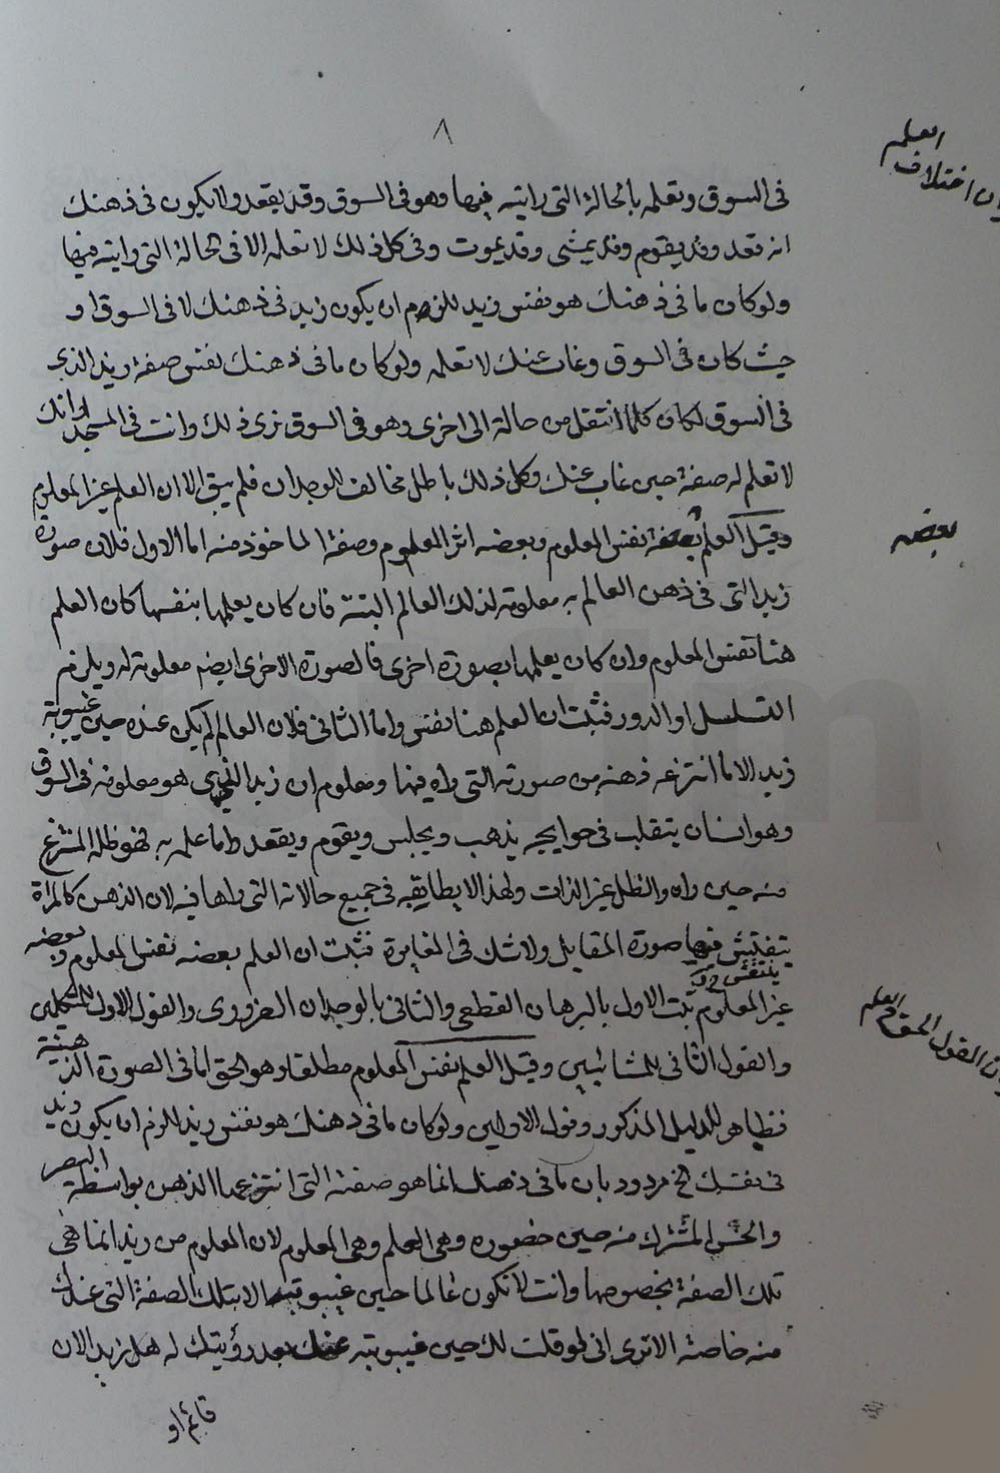 ٨
فى السوق وتعلمه بالحالة التى رايته فيها وهو فى السوق وقد يقعد ولا يكون فى ذهنك
انه قعد وقد يقوم وقد يمشى وقد يموت وفى كل ذلك لا تعلمه الا فى الحالة التى رايته فيها
ولو كان ما فى ذهنك هو نفس زيد للزم ان يكون زيد فى ذهنك لا فى السوق او
حيث كان فى السوق وغاب عنك لا تعلمه ولو كان ما فى ذهنك نفس صفة زيد الذى
فى السوق لكان كلما انتقل من حالة الى اخرى وهو فى السوق ترى ذلك وانت فى المسجد او انك
لا تعلم له صفة حين غاب عنك وكل ذلك باطل مخالف للوجدان فلم يبق الا ان العلم غير المعلوم
وقيل العلم بعضه نفس المعلوم وبعضه اثر المعلوم وصفة الماخوذ منه اما الاول فلان صورة
زيد التى فى ذهن العالم به معلومة لذلك العالم البتة فان كان يعلمها بنفسها كان العلم
هنا نفس المعلوم وان كان يعلمها بصورة اخرى فالصورة الاخرى ايضم معلومة له ويلزم
التسلسل او الدور فثبت ان العلم هنا نفس واما الثانى فلان العالم لم يكن عنده حين غيبوبة
زيد الا ما انتزعه ذهنه من صورته التى راه فيها ومعلوم ان زيد الذى هو معلومه فى السوق
وهو انسان يتقلب فى حوايجه يذهب ويجلس ويقوم ويقعد واما علمه به فهو ظله المنتزع
منه حين راه والظل غير الذات ولهذا لا يطابقه فى جميع حالاته التى راها فيه لان الذهن كالمراة
ينتقش فيها صورة المقابل ولا شك فى المغايرة فثبت ان العلم بعضه نفس المعلوم وبعضه
ينتقش
غير المعلوم ثبت الاول بالبرهان القطعى والثانى بالوجدان الضرورى والقول الاول للمتكلمين
والقول الثانى للمشائيين وقيل العلم نفس المعلوم مطلقا وهو الحق اما فى الصورة الذهنية
فظاهر للدليل المذكور وقول الاولين ولو كان ما فى ذهنك هو نفس زيد للزم ان يكون زيد
فى مردود بان ما فى ذهنك انما هو صفته التى انتزعها الذهن بواسطة البصر
والحس المشترك منه حين حضوره وهى العلم وهى المعلوم لان المعلوم من زيد انما هى
تلك الصفة بخصوصها وانت لا تكون عالما حين غيبوبته الا بتلك الصفة التى عندك
منه خاصة الا ترى انى لو قلت لك حين غيبوبته عنك بعد رؤيتك له هل زيد الان
قائم او
العلم
اختلاف
بعضه
العلم
القول الحق